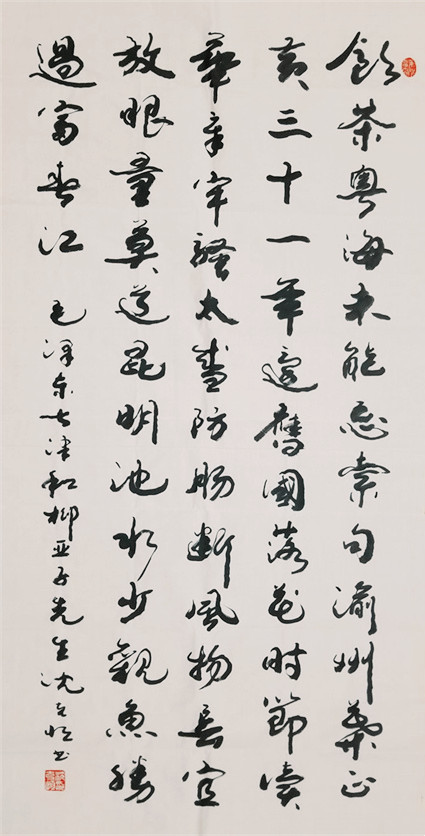 飲茶粤海未能忘索句渝州葉正
黄三十一年還舊國落花時節讀
華章牢騷太盛防腸斷風物長宜
放眼量莫道昆明池水少觀魚勝
過富春江
毛澤东七律和柳亚子先生沈书